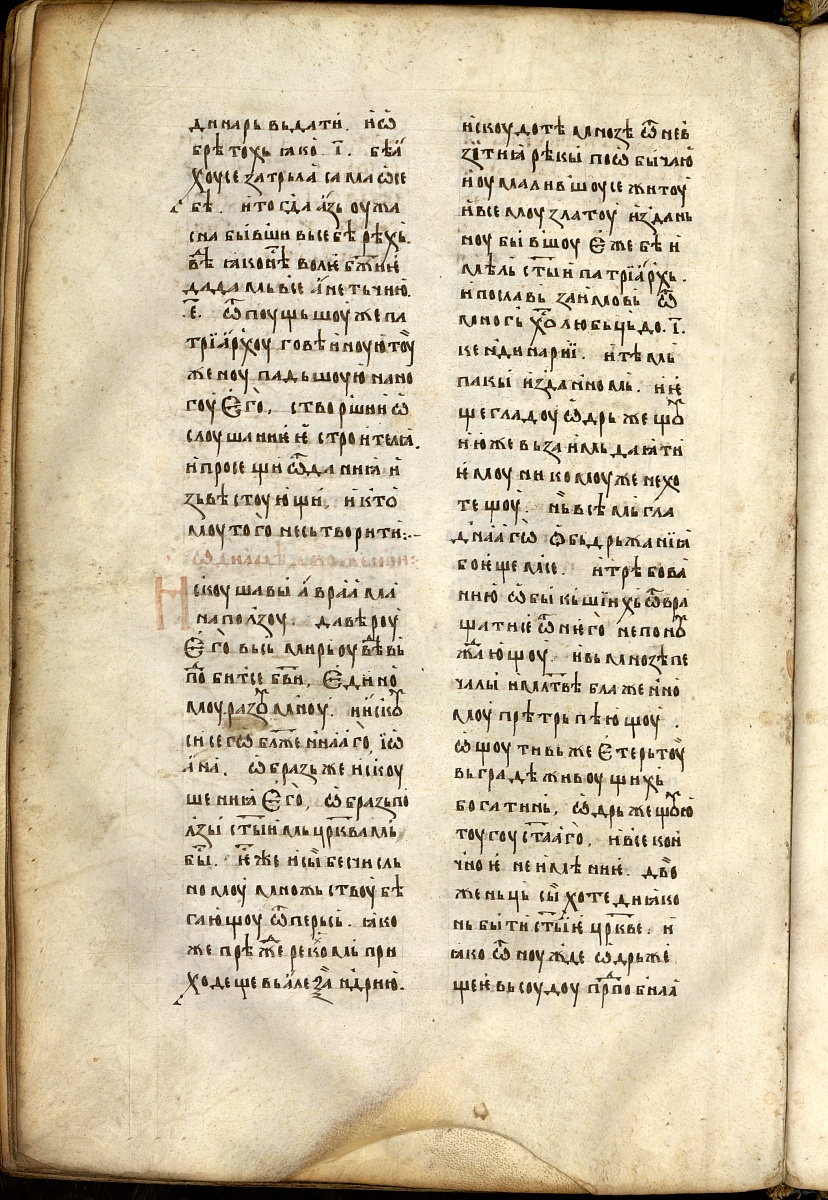 динарь въдати. и҆ ѡ҆
брѣтохь ꙗко .і҃. бѣа҆
хоусе затрьла сама ѡ҆ се
бѣ. и҆ тогⷣа а҆зь оужа
снь бывши вьсебѣ рѣхь.
вⷭ҇ѣ ꙗко не волѥ бж҃иѥ
дадамь вьсе а҆не тьчию
.е҃. ѿпоущьшоуже па
трїа҆рхоу говѣи҆ноую тоу
женоу падьшоую на но
гоу Ѥ҆го, створшии ѡ҆
слоушаниѥ и҆ строителꙗ.
и҆ просещи ѿданиꙗ и҆
зьвѣстоующи, и҆ кто
моу того не сьтворити:~
И҆скоушавы а҆враама
на ползоу. да вѣроу
Ѥ҆го вьсь мирь оувⷭ҇ѣвь
пⷣобитсе бв҃и, Ѥ҆дино
моу разоумноу. и҆ и҆скоу
си сего бл҃женнааго, і҆ѡ
а҆на. ѡ҆бразь же и҆скоу
шениꙗ Ѥ҆го, ѡ҆бразь по
лзы ст҃ыимь цр҃квамь
бы. и҆же и҆сы бесчисль
номоу множьствоу бѣ
гающоу ѿ персь. ꙗко
же прѣжⷣе рекомь при
ходеще вь а҆леѯаⷩ҇дрию.
и҆ скоудотѣ мнозѣ ѿ нев
зїтиꙗ рѣкы по ѡ҆бычаю
и҆ оумалившоусе житоу
и҆ всемоу златоу и҆здань
ноу бывшоу Ѥ҆же бѣ и҆
мѣль ст҃ыи патрїа҆рхь.
и҆ пославь заимовь ѿ
многь хоⷧ҇любьць до .і҃.
кендинарїи. и҆ тѣмь
пакы и҆зданномь. и҆ ѥ
ще гладоу ѡ҆дрьжещоу
и҆ юже вьзаимь даꙗти
ѥ҆моу никомоуже нехо
тещоу. нь всѣмь гла
днааго ѡ҆бьдрьжаниꙗ
боѥщемсе. и҆ трѣбова
нию ѡ҆быкьшїихь ѿвра
щатисе ѿ него не помоу
жающоу. и҆ вь мнозѣ пе
чалы и҆ млт҃вѣ блаженно
моу прѣтрьпѣющоу.
ѡ҆щоутивь же Ѥ҆терь тоу
вь градѣ живоущихь
богатинь, ѡ҆дрьжещоую
тоугоу ст҃ааго, и҆ все кон
чноѥ неимѣниѥ. дво
женьць сы хоте диꙗко
нь быти ст҃ыѥ цр҃кве. и҆
ꙗко ѿ ноужде ѡ҆дрьже
щеѥ вь соудоу прⷣпобнаꙗ